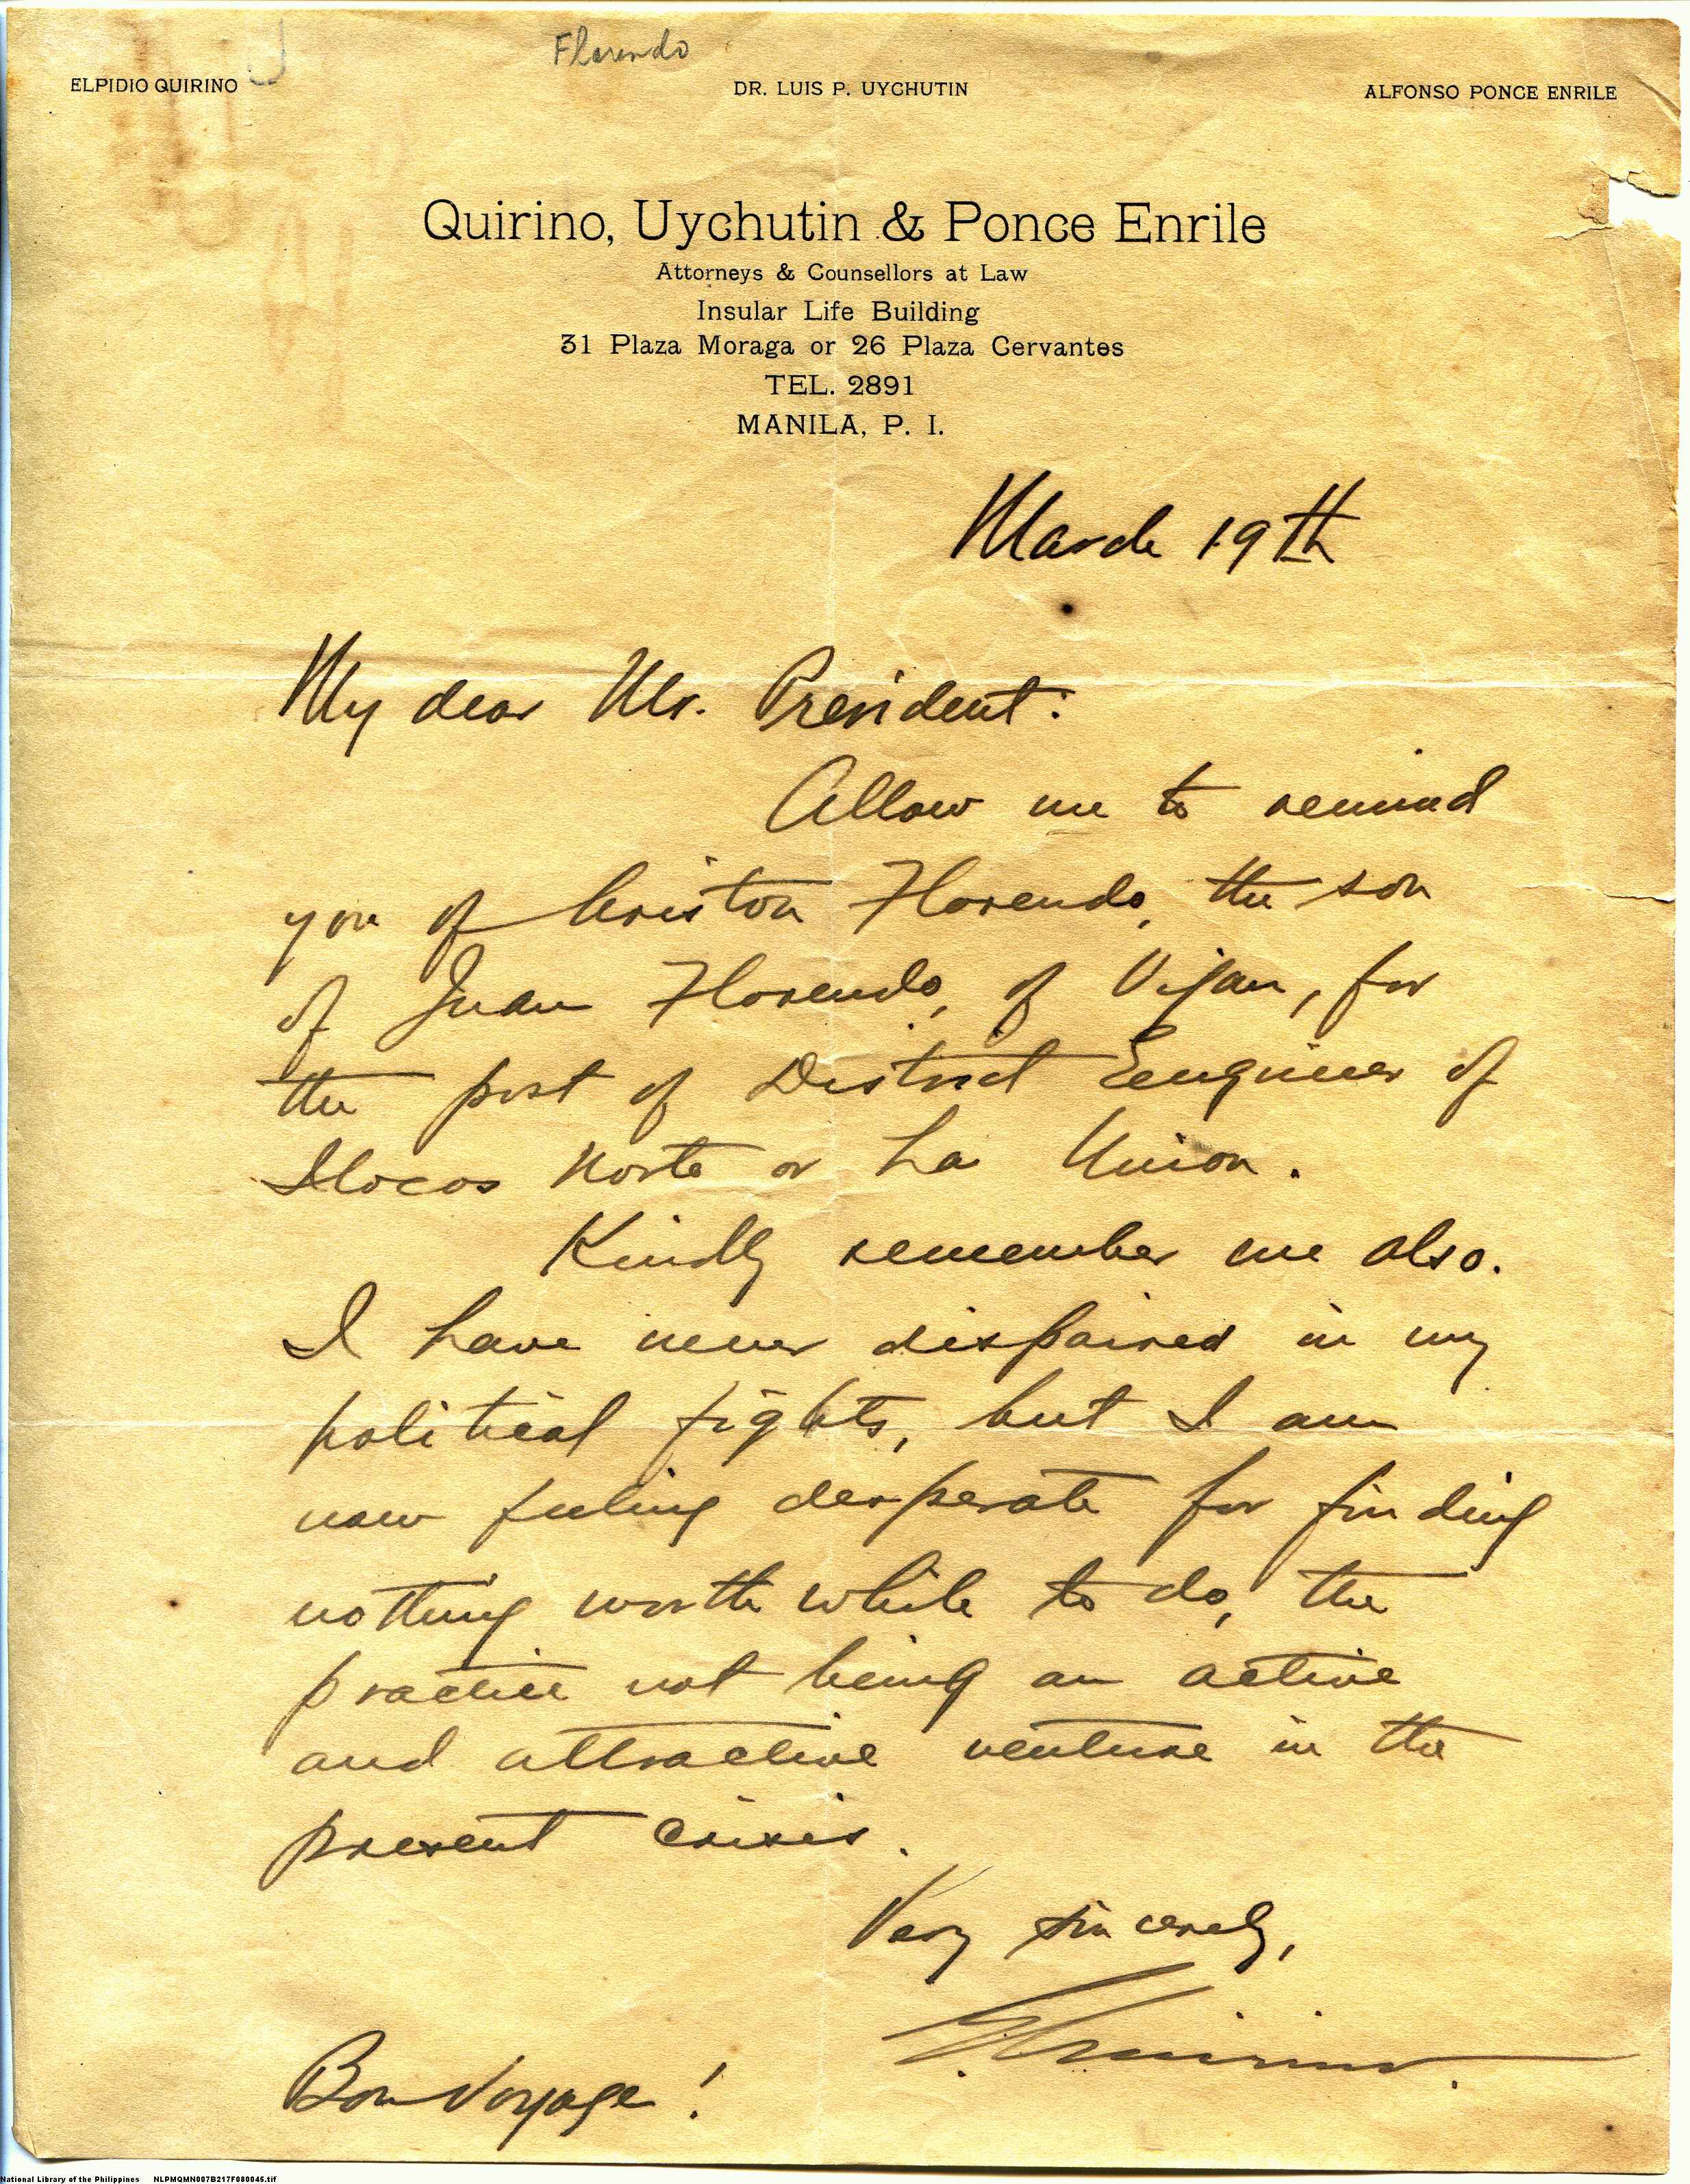 Florendo
ELPIDIO QUIRINO
DR. LUIS P. UYCHUTIN
ALFONSO PONCE ENRILE
Quirino, Uychutin & Ponce Enrile
Attorneys & Counsellors at Law
Insular Life Building
31 Plaza Moraga or 26 Plaza Cervantes
TEL. 2891
MANILA, P. I.
March 19th
My dear Mr. President:
Allow me to remind
you of Criston Florendo, the son
of Juan Florendo, of Vigan, for
the post of District Engineer of
Ilocos Norte or La Union.
Kindly remember me also.
I have never dispaired in my
political fights, but I am
now feeling desperate for finding
nothing worth while to do, the
practice not being an active
and attractive venture in the
present crisis.
Very sincerely,
E. Quirino.
Bon Voyage!
National Library of the Philippines NLPMQMN007B217F080045.tif